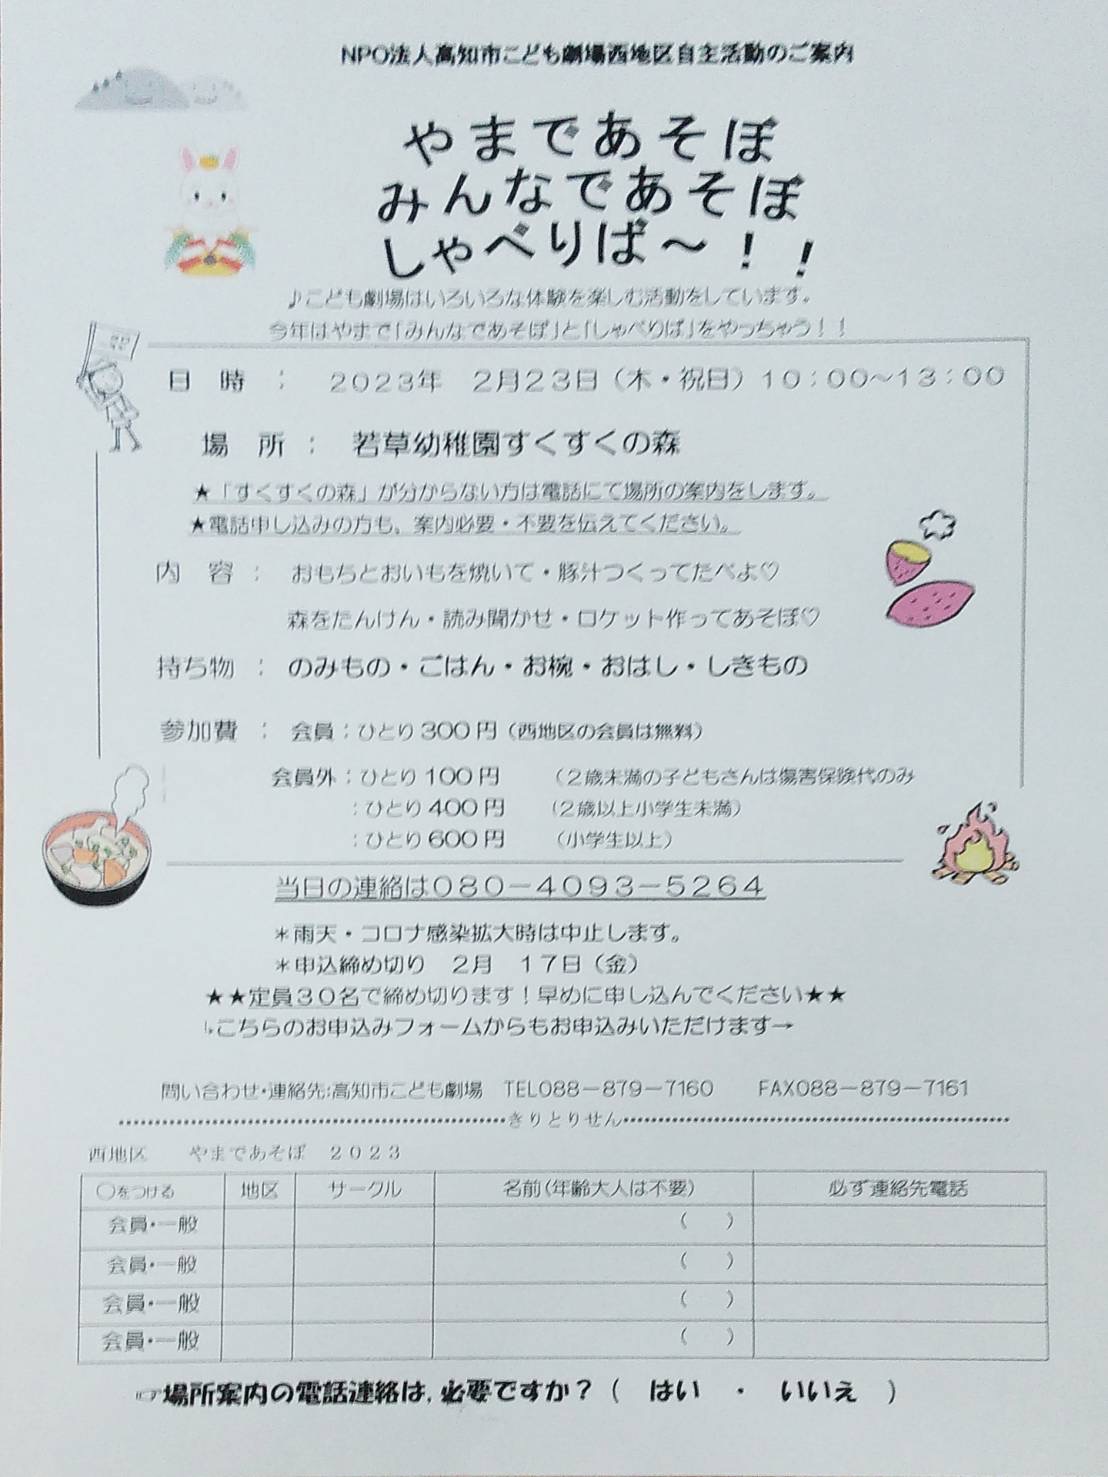 NPO法人高知市こども劇場西地区自主活動のご案内
やまであそぼ
みんなであそぼ
しゃべりば～！！
♪こども劇場はいろいろな体験を楽しむ活動をしています。
今年はやまで「みんなであそぼ」と「しゃべりば」をやっちゃう！！
日　時　：　２０２３年　２月２３日（木・祝日）１０：００～１３：００
場　所　：　若草幼稚園すくすくの森
★「すくすくの森」が分からない方は電話にて場所の案内をします。
★電話申し込みの方も、案内必要・不要を伝えてください。
内　容　：　おもちとおいもを焼いて・豚汁つくってたべよ♡
森をたんけん・読み聞かせ・ロケット作ってあそぼ♡
持ち物　：　のみもの・ごはん・お椀・おはし・しきもの
参加費　：　会員：ひとり300円（西地区の会員は無料）
会員外：ひとり100円　（２歳未満の子どもさんは傷害保険代のみ
：ひとり400円　（２歳以上小学生未満）
：ひとり600円　（小学生以上）
当日の連絡は０８０－４０９３－５２６４
＊雨天・コロナ感染拡大時は中止します。
＊申込締め切り　２月　１７日（金）
★★定員３０名で締め切ります！早めに申し込んでください★★
↳こちらのお申込みフォームからもお申込みいただけます→
問い合わせ・連絡先：高知市こども劇場　TEL088－879－7160　FAX088－879－7161
きりとりせん
西地区　やまであそぼ　２０２３
○をつける　地区　サークル　名前（年齢大人は不要）　必ず連絡先電話
会員・一般　（　）
会員・一般　（　）
会員・一般　（　）
会員・一般　（　）
☞場所案内の電話連絡は,必要ですか？（　はい　・　いいえ　）